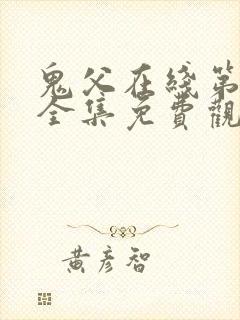 鬼父在綫第
全集免費觀
黃彥智